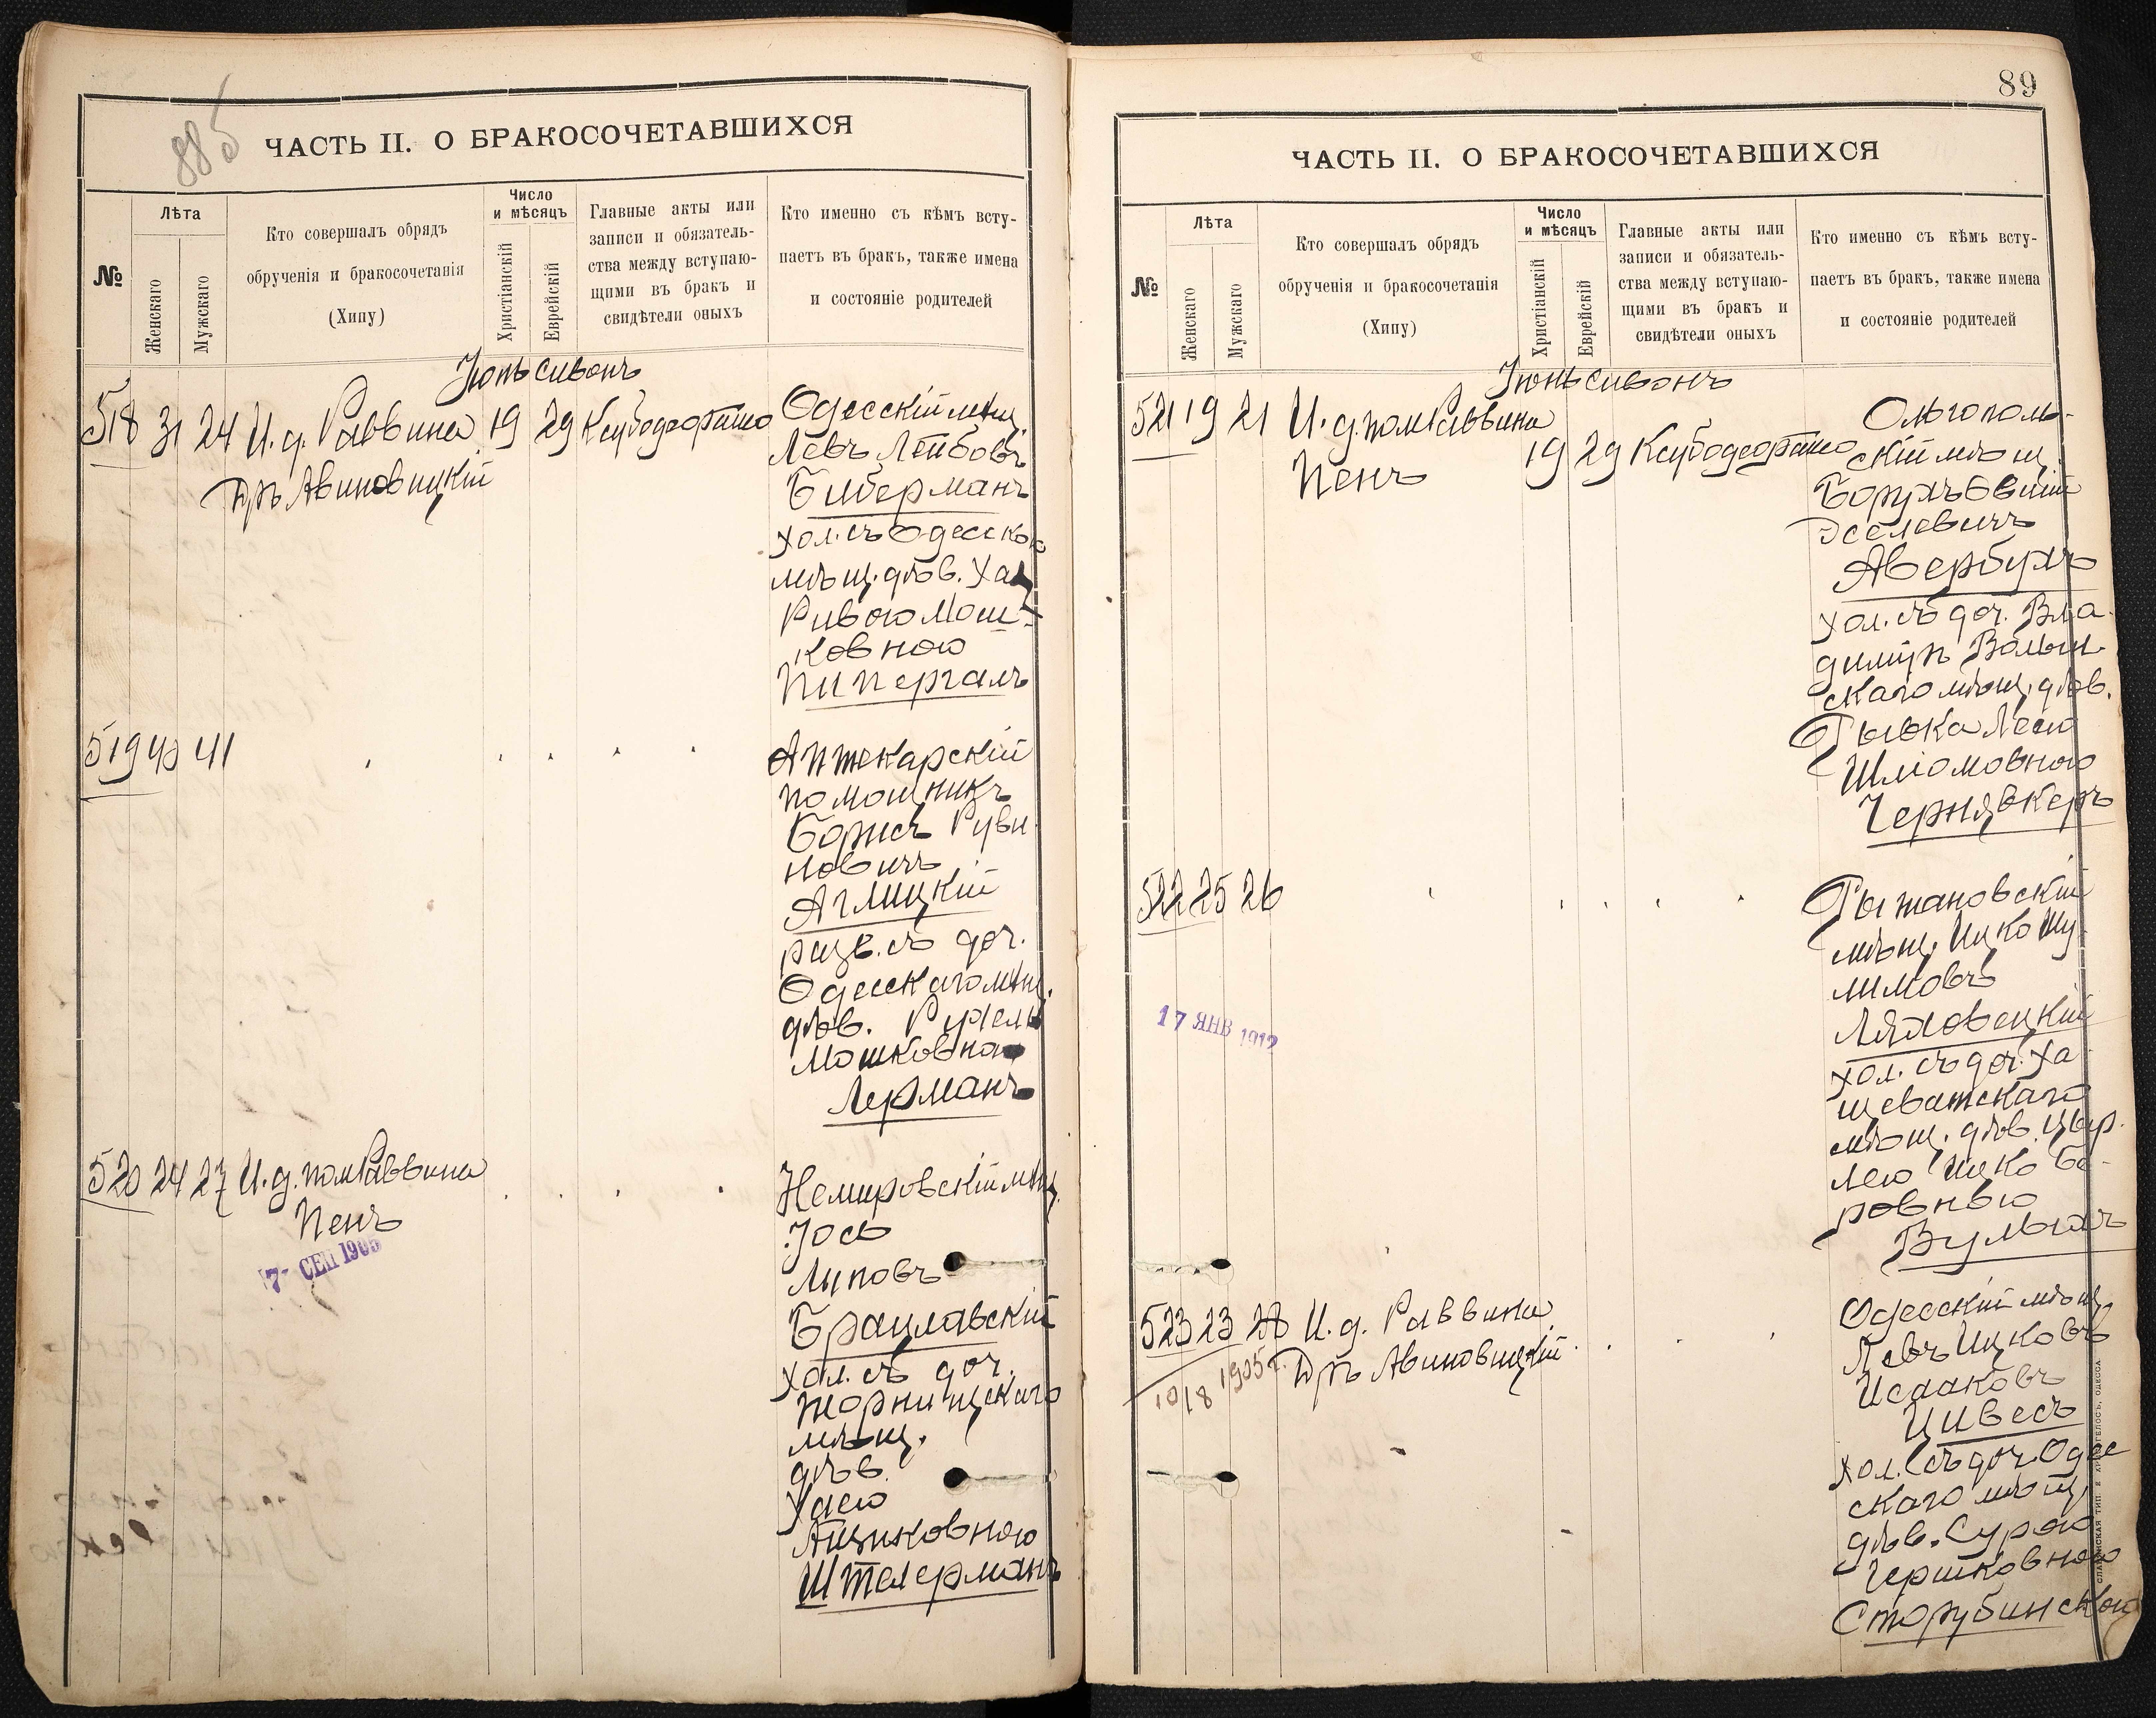 88б
ЧАСТЬ II. О БРАКОСОЧЕТАВШИХСЯ
№
Лѣта
Женскаго
Мужскаго
Кто совершалъ обрядъ
обрученія и бракосочетанія
(Хипу)
Число
и мѣсяцъ
Христіанскій
Еврейскій
Главные акты или
записи и обязатель-
ства между вступаю-
щими въ бракъ и
свидѣтели оныхъ
Кто именно съ кѣмъ всту-
паетъ въ бракъ, также имена
и состояніе родителей
Іюнь сивонъ
518 31 24 И. д. Раввина 19 29
Дръ Авиновицкій
Одесскій мѣщ.
Левъ Лейбовъ
Биберманъ
хол. съ Одесскою
мѣщ. дѣв. Хая
Ривою Мош-
ковною
Пипергалъ
519 40 41
Аптекарскій
помощникъ
Борисъ Руви-
новичъ
Аглицкій
разв. съ доч.
Одесскаго мѣщ.
дѣв. Рухель
Мошковною
Лерманъ
520 24 27 И. д. пом Раввина
Пенъ
7- СЕП 1905
Немировскій мѣщ.
Іось
Липовъ
Брацлавскій
хол. съ доч.
жорнищскаго
мѣщ.
дѣв.
Хаею
Ициковною
Штелерманъ
89
ЧАСТЬ II. О БРАКОСОЧЕТАВШИХСЯ
№
Лѣта
Женскаго
Мужскаго
Кто совершалъ обрядъ
обрученія и бракосочетанія
(Хипу)
Число
и мѣсяцъ
Христіанскій
Еврейскій
Главные акты или
записи и обязатель-
ства между вступаю-
щими въ бракъ и
свидѣтели оныхъ
Кто именно съ кѣмъ всту-
паетъ въ бракъ, также имена
и состояніе родителей
Іюнь сивонъ
521 19 21 И. д. пом Раввина
Пенъ 19 29
Ольгополь-
скій мѣщ.
Борухъ Овшій
Эселевичъ
Авербухъ
хол. съ доч. Вла-
димір Волын-
скаго мѣщ. дѣв.
Рывка Леею
Шліомовною
Чернявкеръ
522 25 26
17 ЯНВ 1912
Рыжановскій
мѣщ. Ицко Шу-
лимовъ
Ляховецкій
хол. съ доч. Ха-
щеватскаго
мѣщ. дѣв. Цыр-
лею Ицко Бе-
ровною
Вульгахъ
523 23 28 И. д. Раввина
Дръ Авиновицкій
10/18 1905 г.
Одесскій мѣщ.
Левъ Ицковъ
Исааковъ
Цивесъ
хол. съ доч. Одес
скаго мѣщ.
дѣв. Сурою
Гершковною
Сторубинскою
СЛАВЯНСКАЯ ТИП. Е ХРИСОГЕЛОСЪ, ОДЕССА